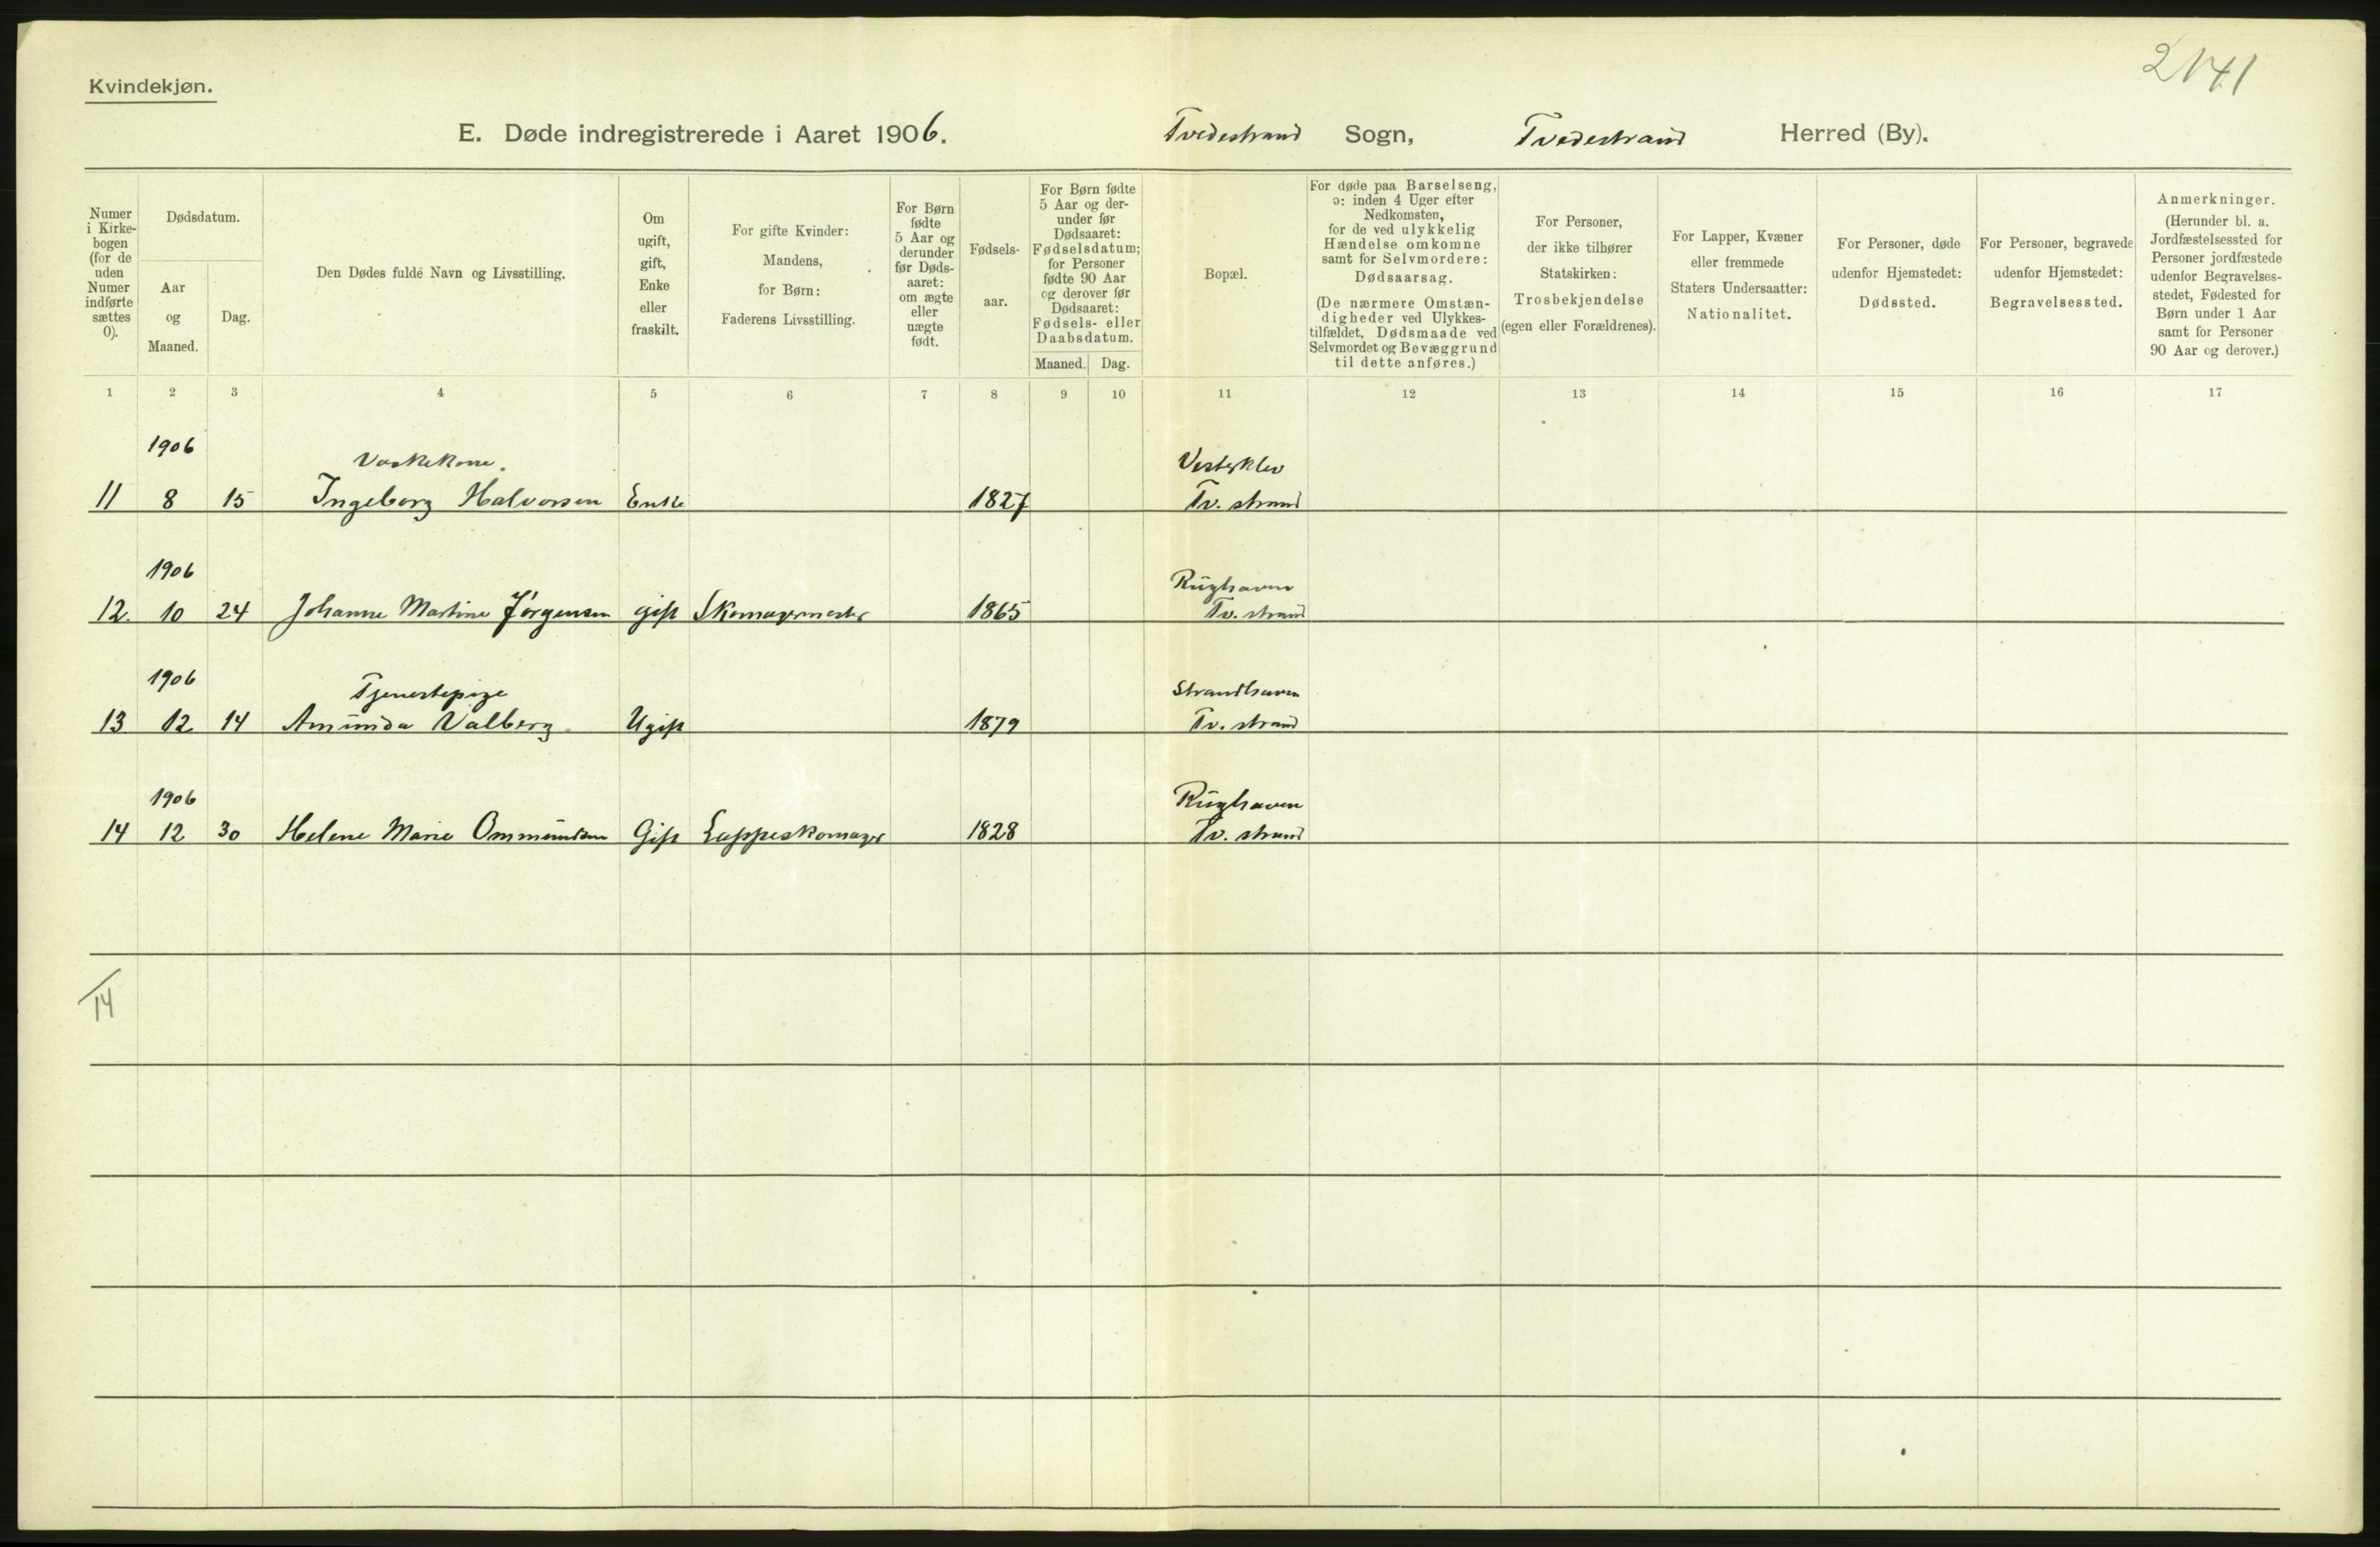 2141
Kvindekjøn.
E. Døde indregistrerede i Aaret 1906. Tvedestrand Sogn, Tvedestrand Herred (By).
Numer
i Kirke-
bogen
(for de
uden
Numer
indførte
sættes
0).
Dødsdatum.
Aar
og
Maaned.
Dag.
Den Dødes fulde Navn og Livsstilling.
Om
ugift,
gift,
Enke
eller
fraskilt.
For gifte Kvinder:
Mandens,
for Børn:
Faderens Livsstilling.
For Børn
fødte
5 Aar og
derunder
før Døds-
aaret:
om ægte
eller
uægte
født.
Fødsels-
aar.
For Børn fødte
5 Aar og der-
under før
Dødsaaret:
Fødselsdatum;
for Personer
fødte 90 Aar
og derover før
Dødsaaret:
Fødsels- eller
Daabsdatum.
Maaned. Dag.
Bopæl.
For døde paa Barselseng,
ɔ: inden 4 Uger efter
Nedkomsten,
for de ved ulykkelig
Hændelse omkomne
samt for Selvmordere:
Dødsaarsag.
(De nærmere Omstæn-
digheder ved Ulykkes-
tilfældet, Dødsmaade ved
Selvmordet og Bevæggrund
til dette anføres.)
For Personer,
der ikke tilhører
Statskirken:
Trosbekjendelse
(egen eller Forældrenes).
For Lapper, Kvæner
eller fremmede
Staters Undersaatter:
Nationalitet.
For Personer, døde
udenfor Hjemstedet:
Dødssted.
For Personer, begravede
udenfor Hjemstedet:
Begravelsessted.
Anmerkninger.
(Herunder bl. a.
Jordfæstelsessted for
Personer jordfæstede
udenfor Begravelses-
stedet, Fødested for
Børn under 1 Aar
samt for Personer
90 Aar og derover.)
1 2 3 4 5 6 7 8 9 10 11 12 13 14 15 16 17
1906 Vaskekone. Vesterklev
11 8 15 Ingeborg Halvorsen Enke 1827 Tv. strand
1906 Rughaven
12. 10 24 Johanne Martine Jørgensen gift Skomagermester 1865 Tv. strand
1906 Tjenestepige Strandhaven
13 12 14 Amunda Valberg. Ugift 1879 Tv. strand
1906 Rughaven
14 12 30 Helene Marie Ommundsen Gift Lappeskomager 1828 Tv. strand
14